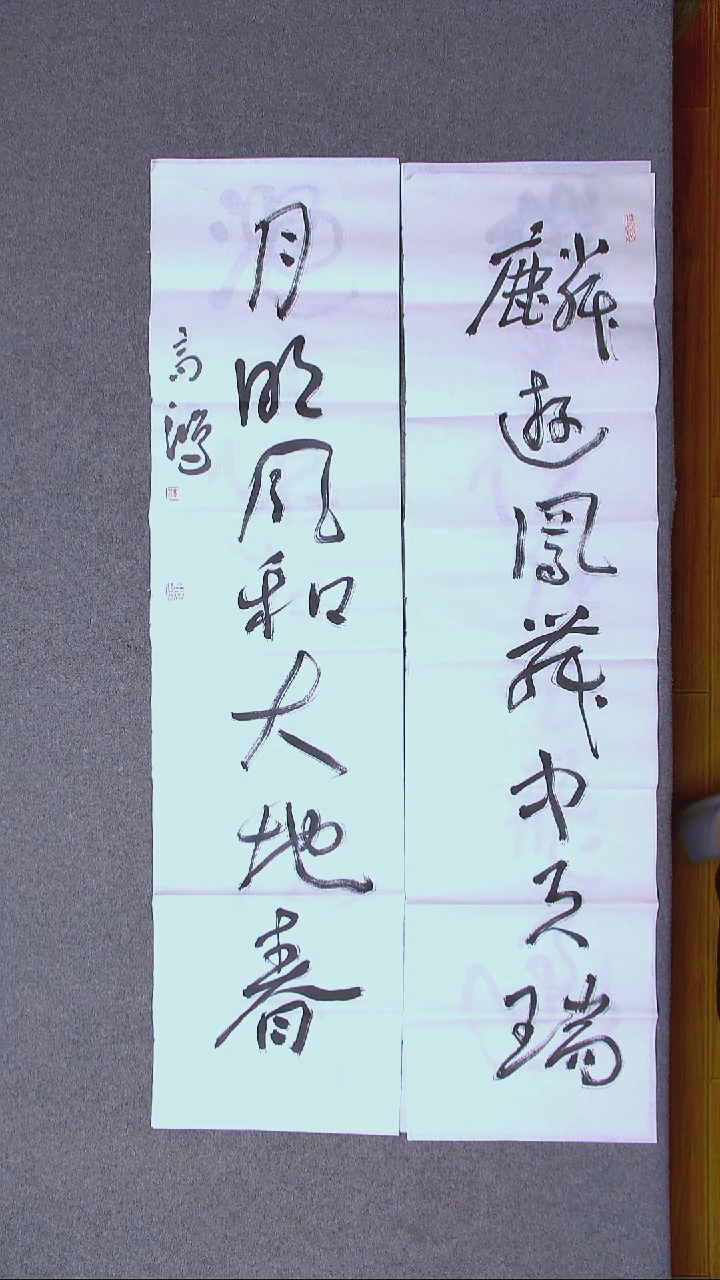 麟遊鳳舞中天瑞
月明风和大地春
高鸿